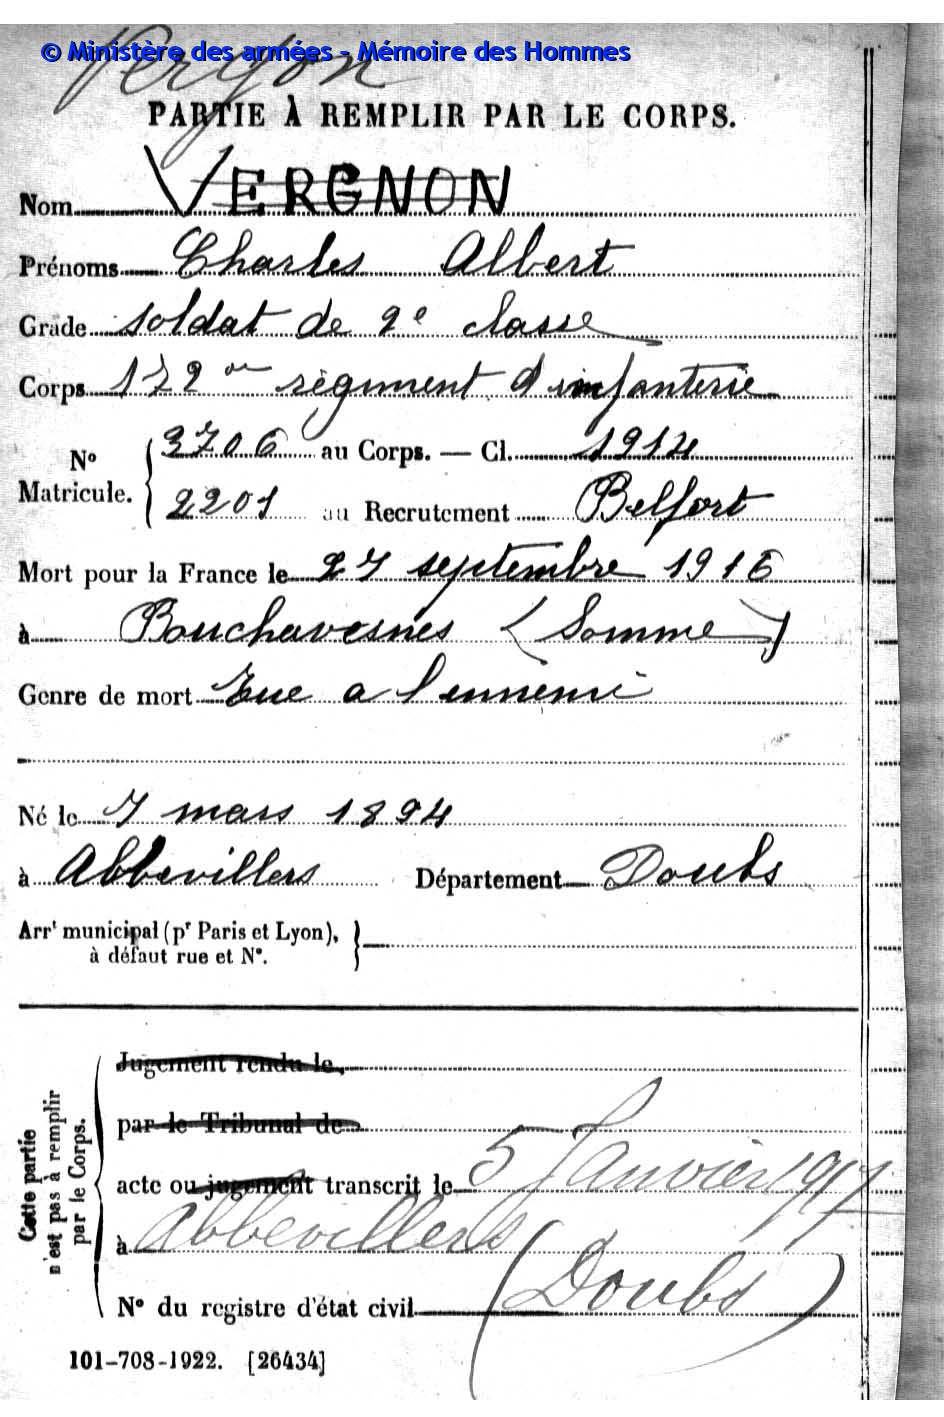 © Ministère des armées - Mémoire des Hommes
Vergon
PARTIE À REMPLIR PAR LE CORPS.
Nom VERGNON
Prénoms Charles Albert
Grade soldat de 2e classe
Corps 172me régiment d'infanterie
No Matricule. { 3706 au Corps. — Cl. 1914
2201 au Recrutement Belfort
Mort pour la France le 27 septembre 1916
à Bouchavesnes (Somme)
Genre de mort Tué a l'ennemi
Né le 7 mars 1894
à Abbevillers Département Doubs
Arrt municipal (pr Paris et Lyon),
à défaut rue et No.
Cette partie
n'est pas à remplir
par le Corps.
Jugement rendu le,
par le Tribunal de
acte ou jugement transcrit le 5 Janvier 1917
à Abbevillers (Doubs)
No du registre d'état civil
101-708-1922. [26434]